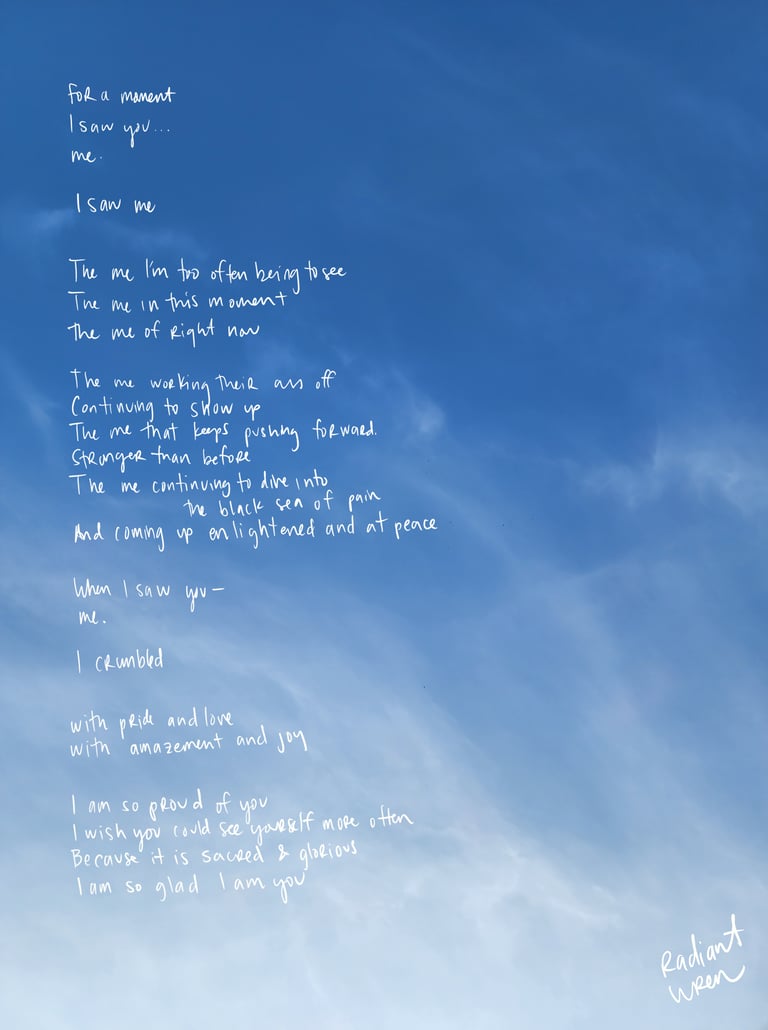 For a moment
I saw you...
me.
I saw me
The me I'm too often being to see
The me in this moment
The me of right now
The me working their ass off
Continuing to show up
The me that keeps pushing forward.
Stronger than before
The me continuing to dive into
the black sea of pain
And coming up enlightened and at peace
When I saw you—
me.
I crumbled
with pride and love
with amazement and joy
I am so proud of you
I wish you could see yourself more often
Because it is sacred & glorious
I am so glad I am you
Radiant
Wren